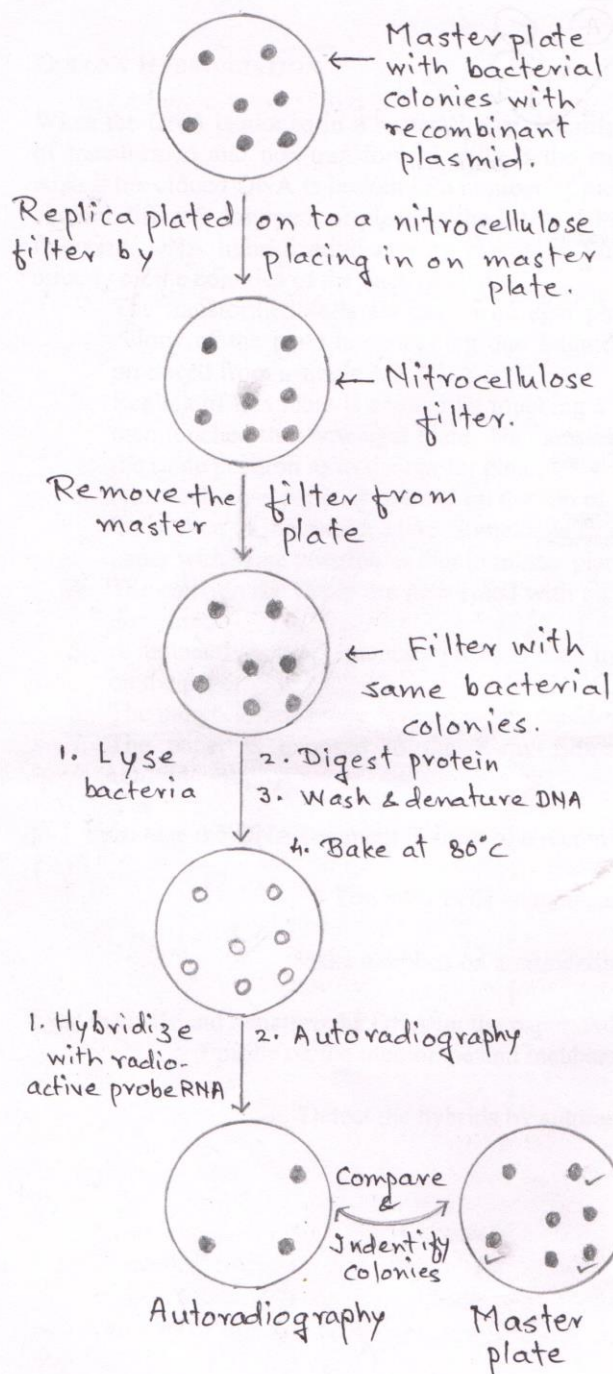 Master plate
with bacterial
colonies with
recombinant
plasmid.
Replica plated on to a nitrocellulose
filter by placing in on master
plate.
Nitrocellulose
filter.
Remove the filter from
master plate
Filter with
same bacterial
colonies.
1. Lyse
bacteria
2. Digest protein
3. Wash & denature DNA
4. Bake at 80°C
1. Hybridize
with radio-
active probe RNA
2. Autoradiography
Compare
&
Indentify
colonies
Autoradiography
Master
plate